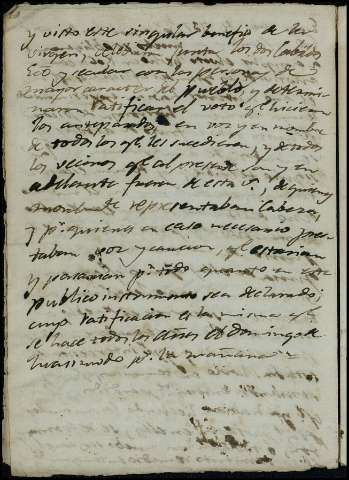 y visto este singular beneficio de la
virgen, determinan juntar los dos Cabildos
Ecco y secular con las personas de
mayor caracter del pueblo, y determi-
naron ratificar el voto q.e hicieron
los antepasados en voz y en nombre
de todos los q.e les sucedieren, y de todos
los vecinos q.e al presente son y en
adelante fueren de esta v.a, de quienes
nombre de representaban Cabeza,
y p.r quienes en caso necesario pres-
taban voz y caucion, q.e estarian
y pasarian p.r todo quanto en este
publico instrumento sea declarado;
cuya ratificacion es la misma q.e
se hace todos los años el domingo de
Quasimodo p.r la mañana